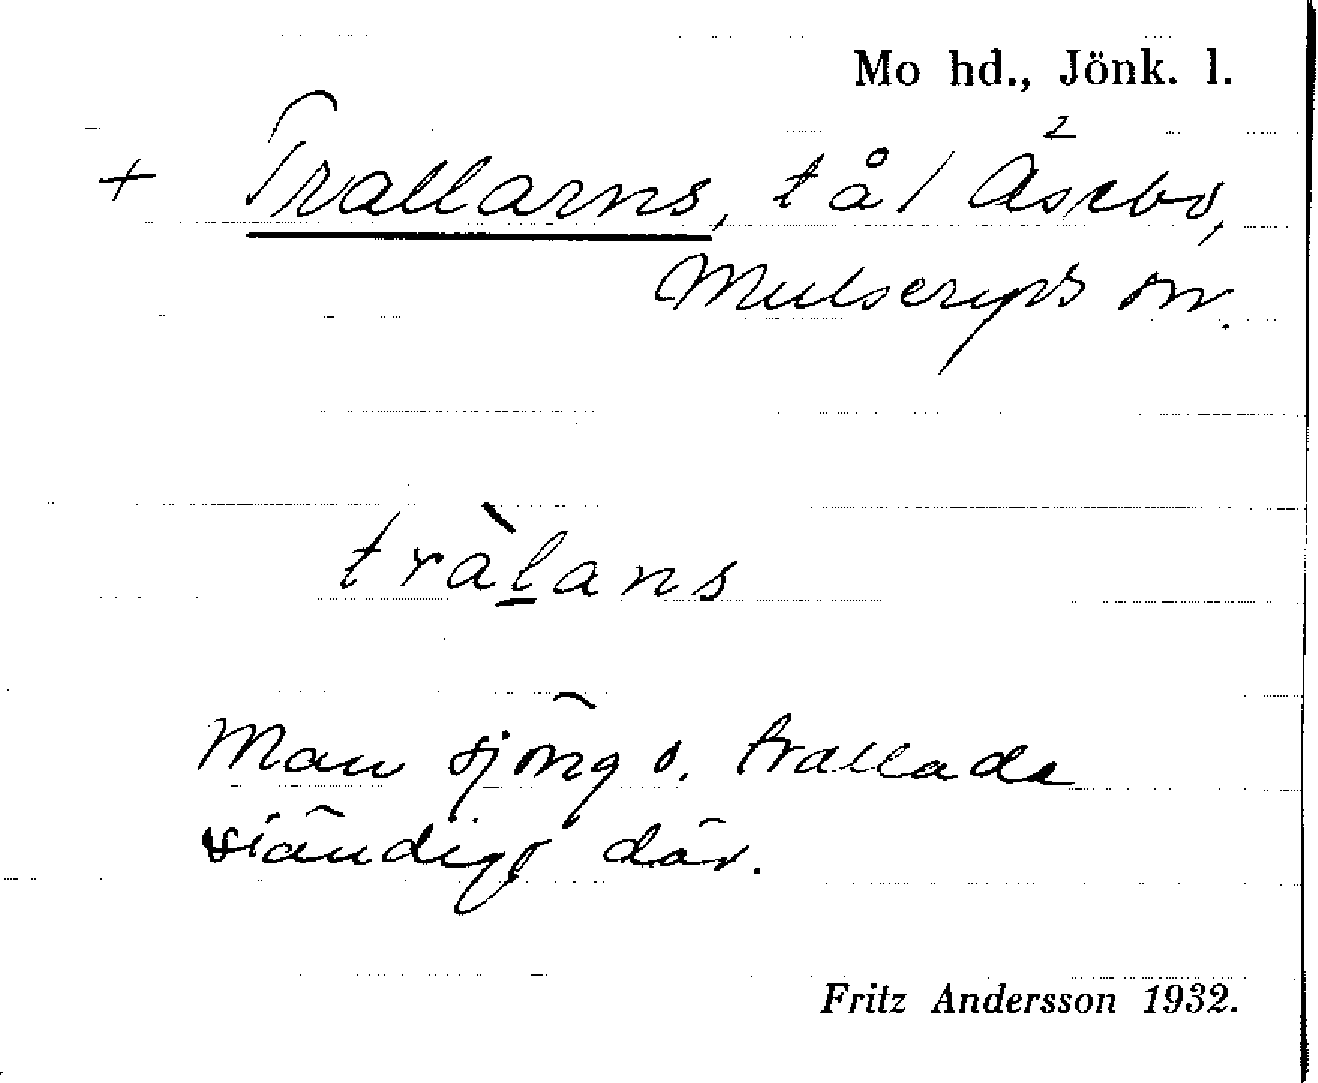 Mo hd., Jönk. l.
+ Trallarns, t å / Åsebo,²
Mulseryds sn.
tràlans
Man sjöng o. trallada
ständigt där.
Fritz Andersson 1932.